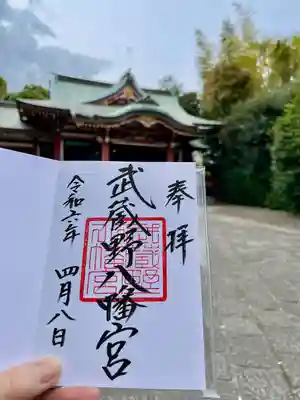 奉拝
武蔵野八幡宮
令和六年
四月八日